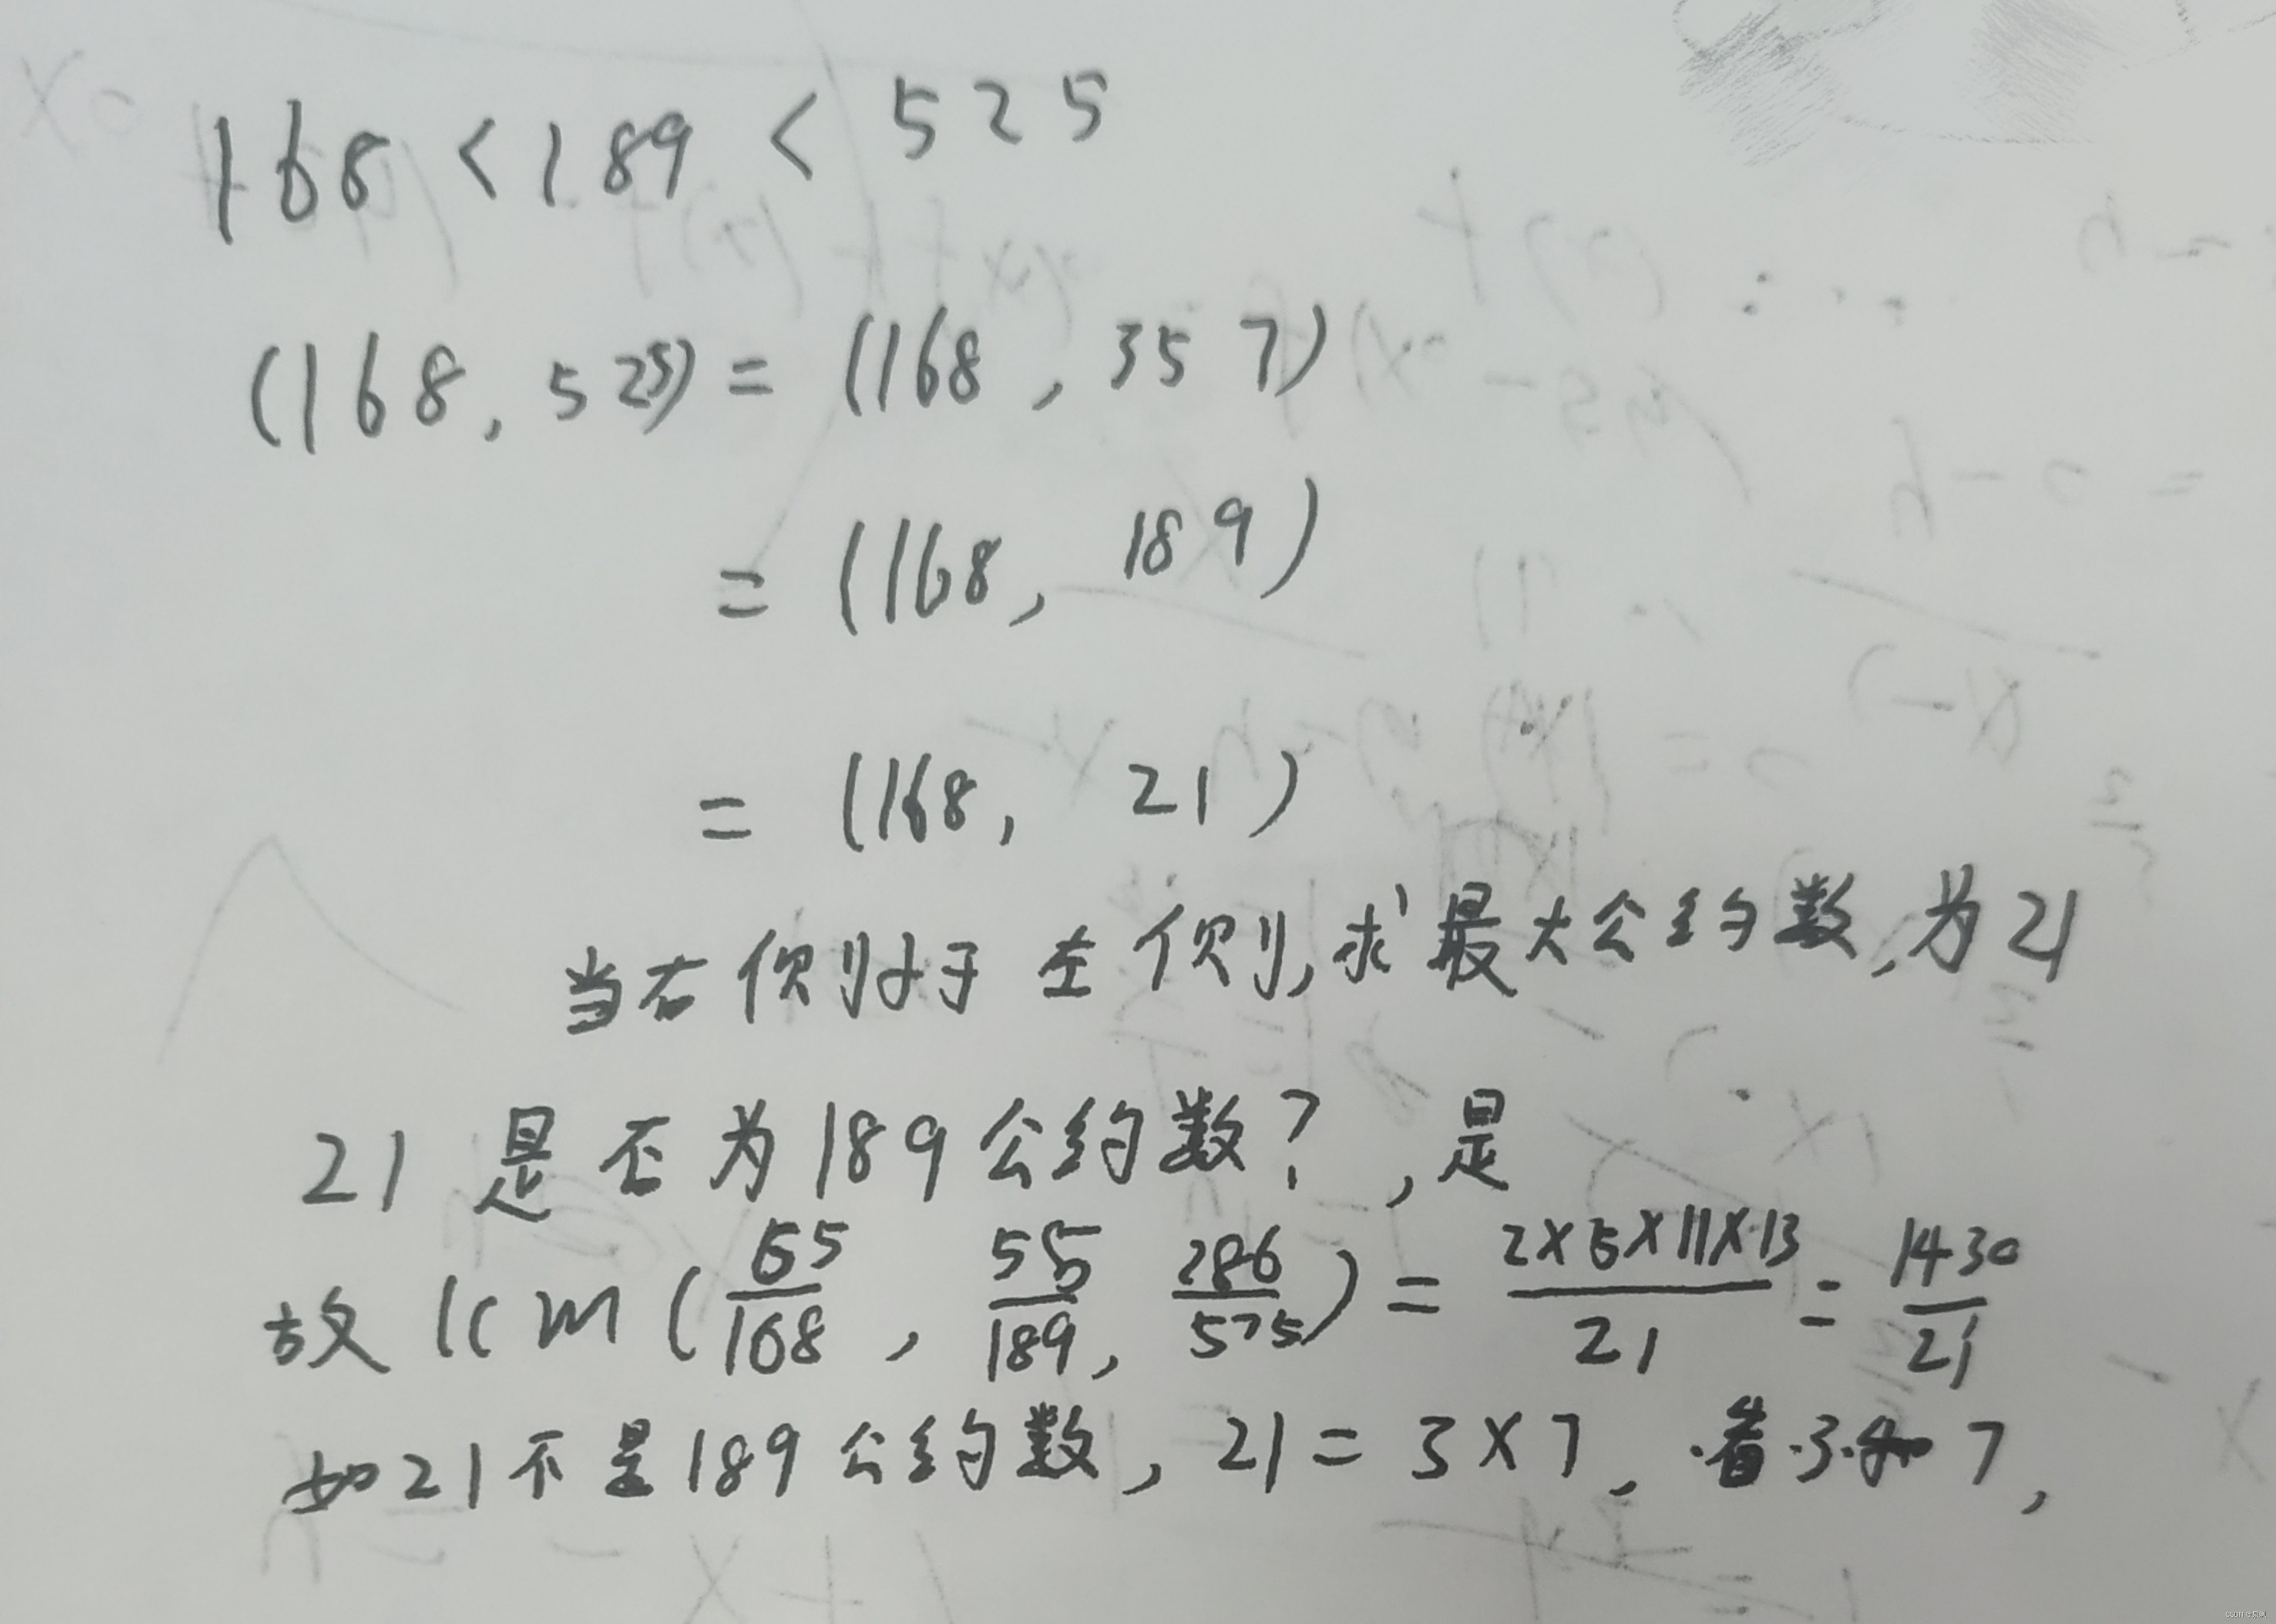 168 < 189 < 525
(168, 525) = (168, 357)
= (168, 189)
= (168, 21)
当右侧小于左侧,求最大公约数,为21
21是否为189公约数?,是
故 lcm(65/168, 55/189, 286/525) = 2×5×11×13/21 = 1430/21
如21不是189公约数, 21=3×7, 看3和7,